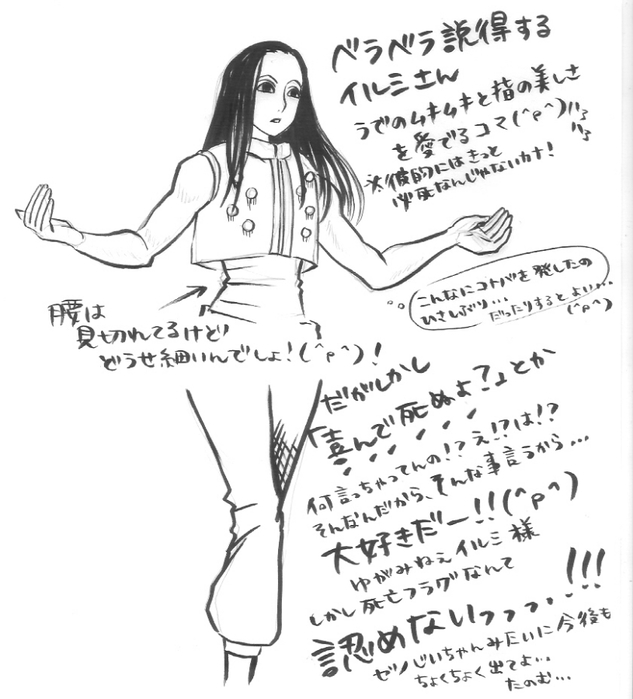 ベラベラ説得する
イルミさん
うでのムキムキと指の美しさ
を愛でるコマ(^p^)ハァハァ
※彼的にはきっと
必死なんじゃないカナ!
こんなにコトバを発したの
ひさしぶり…
だったりするとよい…
(^p^)
腰は
見切れてるけど
どうせ細いんでしょ!(^p^)!
だがしかし
「喜んで死ぬよ?」とか
何言っちゃってんの!?え!?は!?
そんなんだから、そんな事言うから…
大好きだー!!(^p^)
ゆがみねぇイルミ様
しかし死亡フラグなんて
認めないっっっ.!!!
ゼノじいちゃんみたいに今後も
ちょくちょく出てよ…
たのむ…